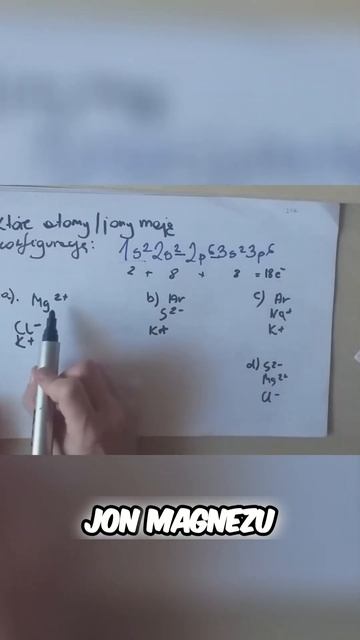 które atomy/jony mają
konfigurację: 1s²2s²2p⁶3s²3p⁶
2 + 8 + 8 = 18e⁻
a). Mg²⁺
Cl⁻
K⁺
b) Ar
S²⁻
K⁺
c) Ar
Na⁺
K⁺
d) S²⁻
Mg²⁺
Cl⁻
JON MAGNEZU